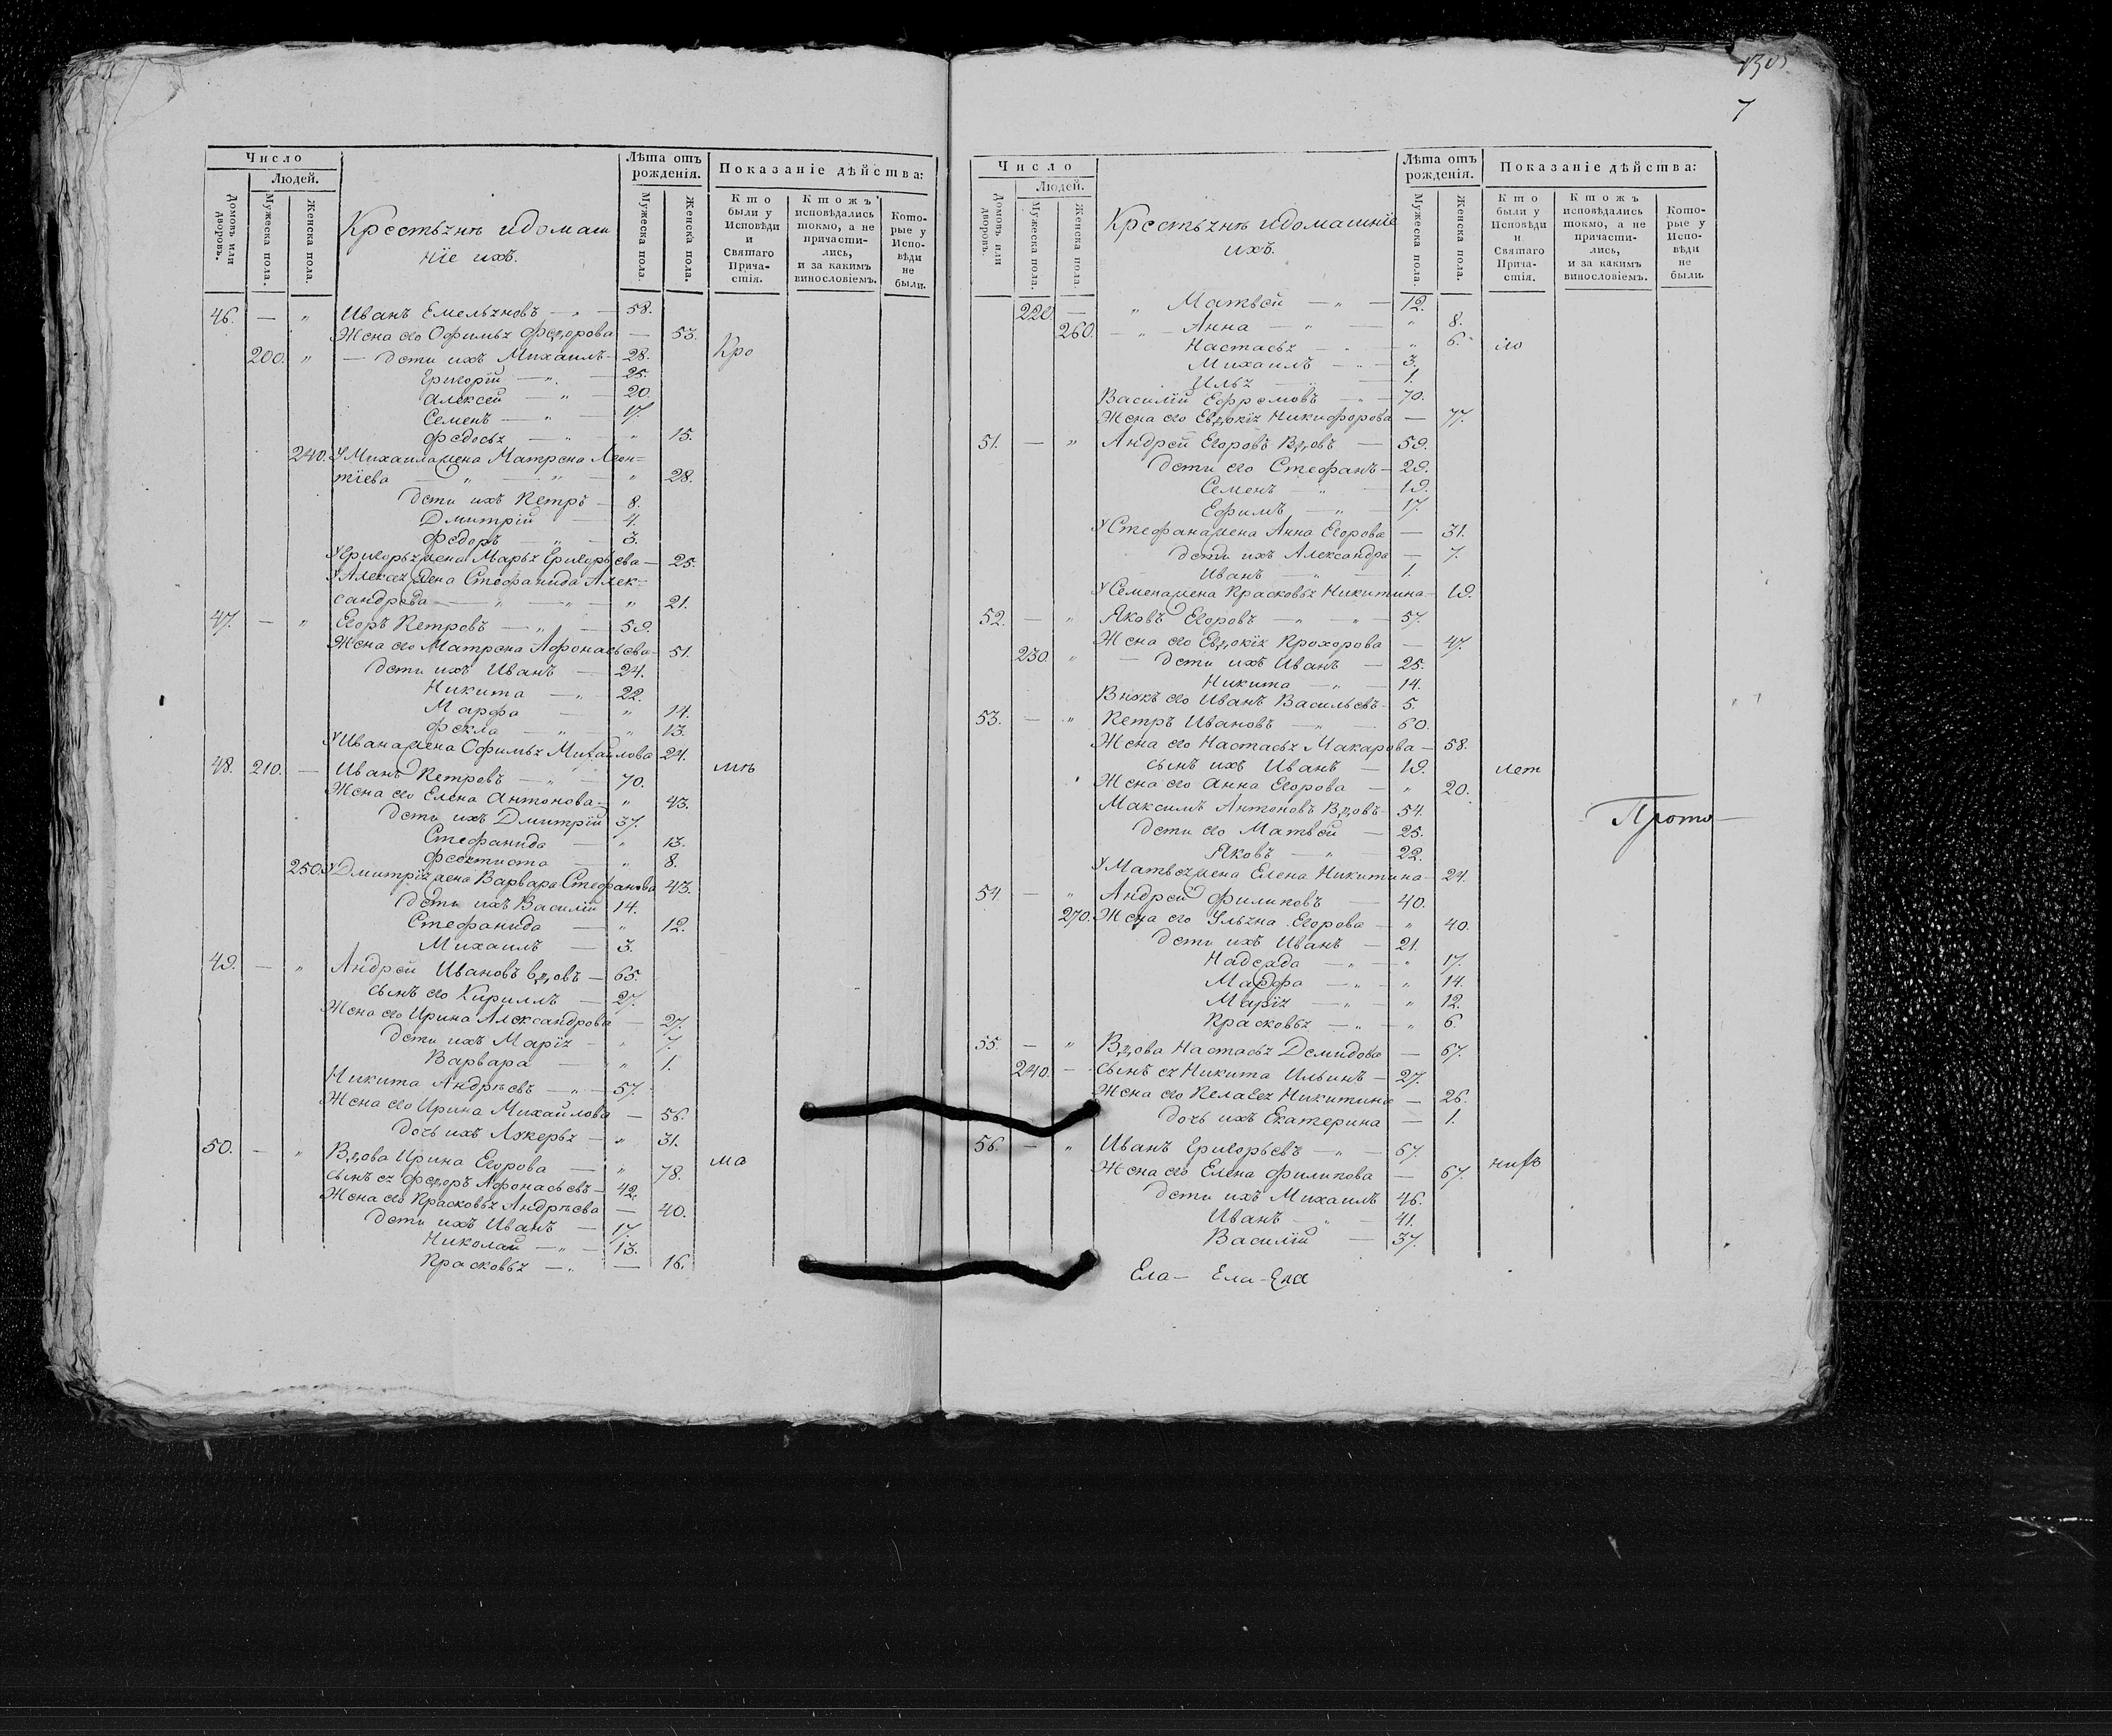 7
Число
Людей.
Домовъ или дворовъ.
Мужеска пола.
Женска пола.
Крестьянѣ идомаш
ніе ихъ.
Лѣта отъ
рожденія.
Мужеска пола.
Женска пола.
Показаніе дѣйства:
Кто
были у
Исповѣди
и
Святаго
Прича-
стія.
Ктожъ
исповѣдались
токмо, а не
причасти-
лись,
и за какимъ
винословіемъ.
Кото-
рые у
Испо-
вѣди
не
были.
46. — „ Иванъ Емельяновъ — „ — 58.
Жена его Офимья Федорова — 53.
200. „ — дети ихъ Михаилъ — 28. Кро
Григорій — „ — 25.
Алексей — „ — 20.
Семенъ — „ — 17.
Федосья — „ — „ 15.
240. У Михаила жена Матрена Леон=
тіева — „ — „ — „ 28.
дети ихъ Петръ — 8.
Дмитрій — 4.
Федоръ — „ — 3.
У Григорья жена Марья Григорьева — 25.
У Алексея жена Стефанида Алек=
сандрова — „ — „ — „ 21.
47. — „ Егоръ Петровъ — „ — 59.
Жена его Матрена Афонасьева — 51.
дети ихъ Иванъ — 24.
Никита — „ 22.
Марфа — „ 14.
Фекла — „ — „ 13.
У Ивана жена Офимья Михайлова 24.
48. 210. — Иванъ Петровъ — „ — 70. мѣ
Жена его Елена Антонова — „ 43.
дети ихъ Дмитрій 37.
Стефанида — „ 13.
Феоктиста — „ 8.
250. У Дмитрія жена Варвара Стефанова 43.
дети ихъ Василій 14.
Стефанида — „ 12.
Михаилъ — 3.
49. — „ Андрей Ивановъ вдовъ — 65.
сынъ его Кириллъ — 27.
Жена его Ирина Александрова — 27.
дети ихъ Марія — „ 7.
Варвара — „ 1.
Никита Андрѣевъ — „ — 57.
Жена его Ирина Михайлова — 56.
дочь ихъ Лукерья — „ 31.
50. — „ Вдова Ирина Егорова — „ 78. ма
сынъ ея Федоръ Афонасьевъ — 42.
Жена его Прасковья Андрѣева — 40.
дети ихъ Иванъ — 17.
Николай — „ — 13.
Прасковья — „ — 16.
Число
Людей.
Домовъ или дворовъ.
Мужеска пола.
Женска пола.
Крестьянѣ идомашніе
ихъ.
Лѣта отъ
рожденія.
Мужеска пола.
Женска пола.
Показаніе дѣйства:
Кто
были у
Исповѣди
и
Святаго
Прича-
стія.
Ктожъ
исповѣдались
токмо, а не
причасти-
лись,
и за какимъ
винословіемъ.
Кото-
рые у
Испо-
вѣди
не
были.
220 — „ Матвей — „ — 12.
260. — „ Анна — „ — „ 8.
Настасья — „ — „ 6. ло
Михаилъ — „ — 3.
Илья — „ — 1.
Василій Ефремовъ — „ — 70.
Жена его Евдокія Никифорова — 77.
51. — „ Андрей Егоровъ Вдовъ — 59.
дети его Стефанъ — 29.
Семенъ — „ — 19.
Ефимъ — „ — 17.
У Стефана жена Анна Егорова — 31.
дети ихъ Александра — 7.
Иванъ — „ — 1.
У Семена жена Прасковья Никитина — 19.
52. — „ Яковъ Егоровъ — „ — „ — 57.
Жена его Евдокія Прохорова — 47.
230. „ — дети ихъ Иванъ — 25.
Никита — „ — 14.
Внукъ его Иванъ Васильевъ — 5.
53. — „ Петръ Ивановъ — „ — 60.
Жена его Настасья Макарова — 58.
сынъ ихъ Иванъ — 19. лет
Жена его Анна Егорова — „ 20.
Максимъ Антоновъ Вдовъ — 54.
Прото
дети его Матвей — 25.
Яковъ — „ — 22.
У Матвея жена Елена Никитина — 24.
54. — „ Андрей Филиповъ — 40.
270. Жена его Ульяна Егорова — „ 40.
дети ихъ Иванъ — 21.
Надежда — „ — „ 17.
Марфа — „ — „ 14.
Марія — „ — „ 12.
Прасковья — „ — „ 6.
55. — „ Вдова Настасья Демидова — 67.
240. — сынъ ея Никита Ильинъ — 27.
Жена его Пелагея Никитина — 26.
дочь ихъ Екатерина — 1.
56. — „ Иванъ Григорьевъ — „ — 67.
Жена его Елена Филипова — 67.
дети ихъ Михаилъ 46.
Иванъ — „ — 41.
Василій — 37.
Ела — Ела — Ела